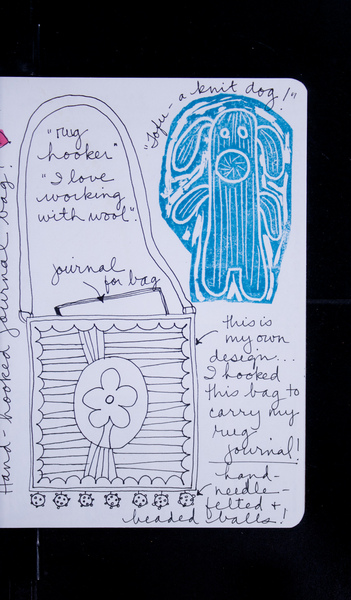 "Sofie - a knit dog!"
"rug
hooker"
"I love
working
with wool".
journal
for bag
Hand-hooked journal bag!
this is
my own
design...
I hooked
this bag to
carry my
rug
journal!
hand-
needle-
felted +
beaded balls!